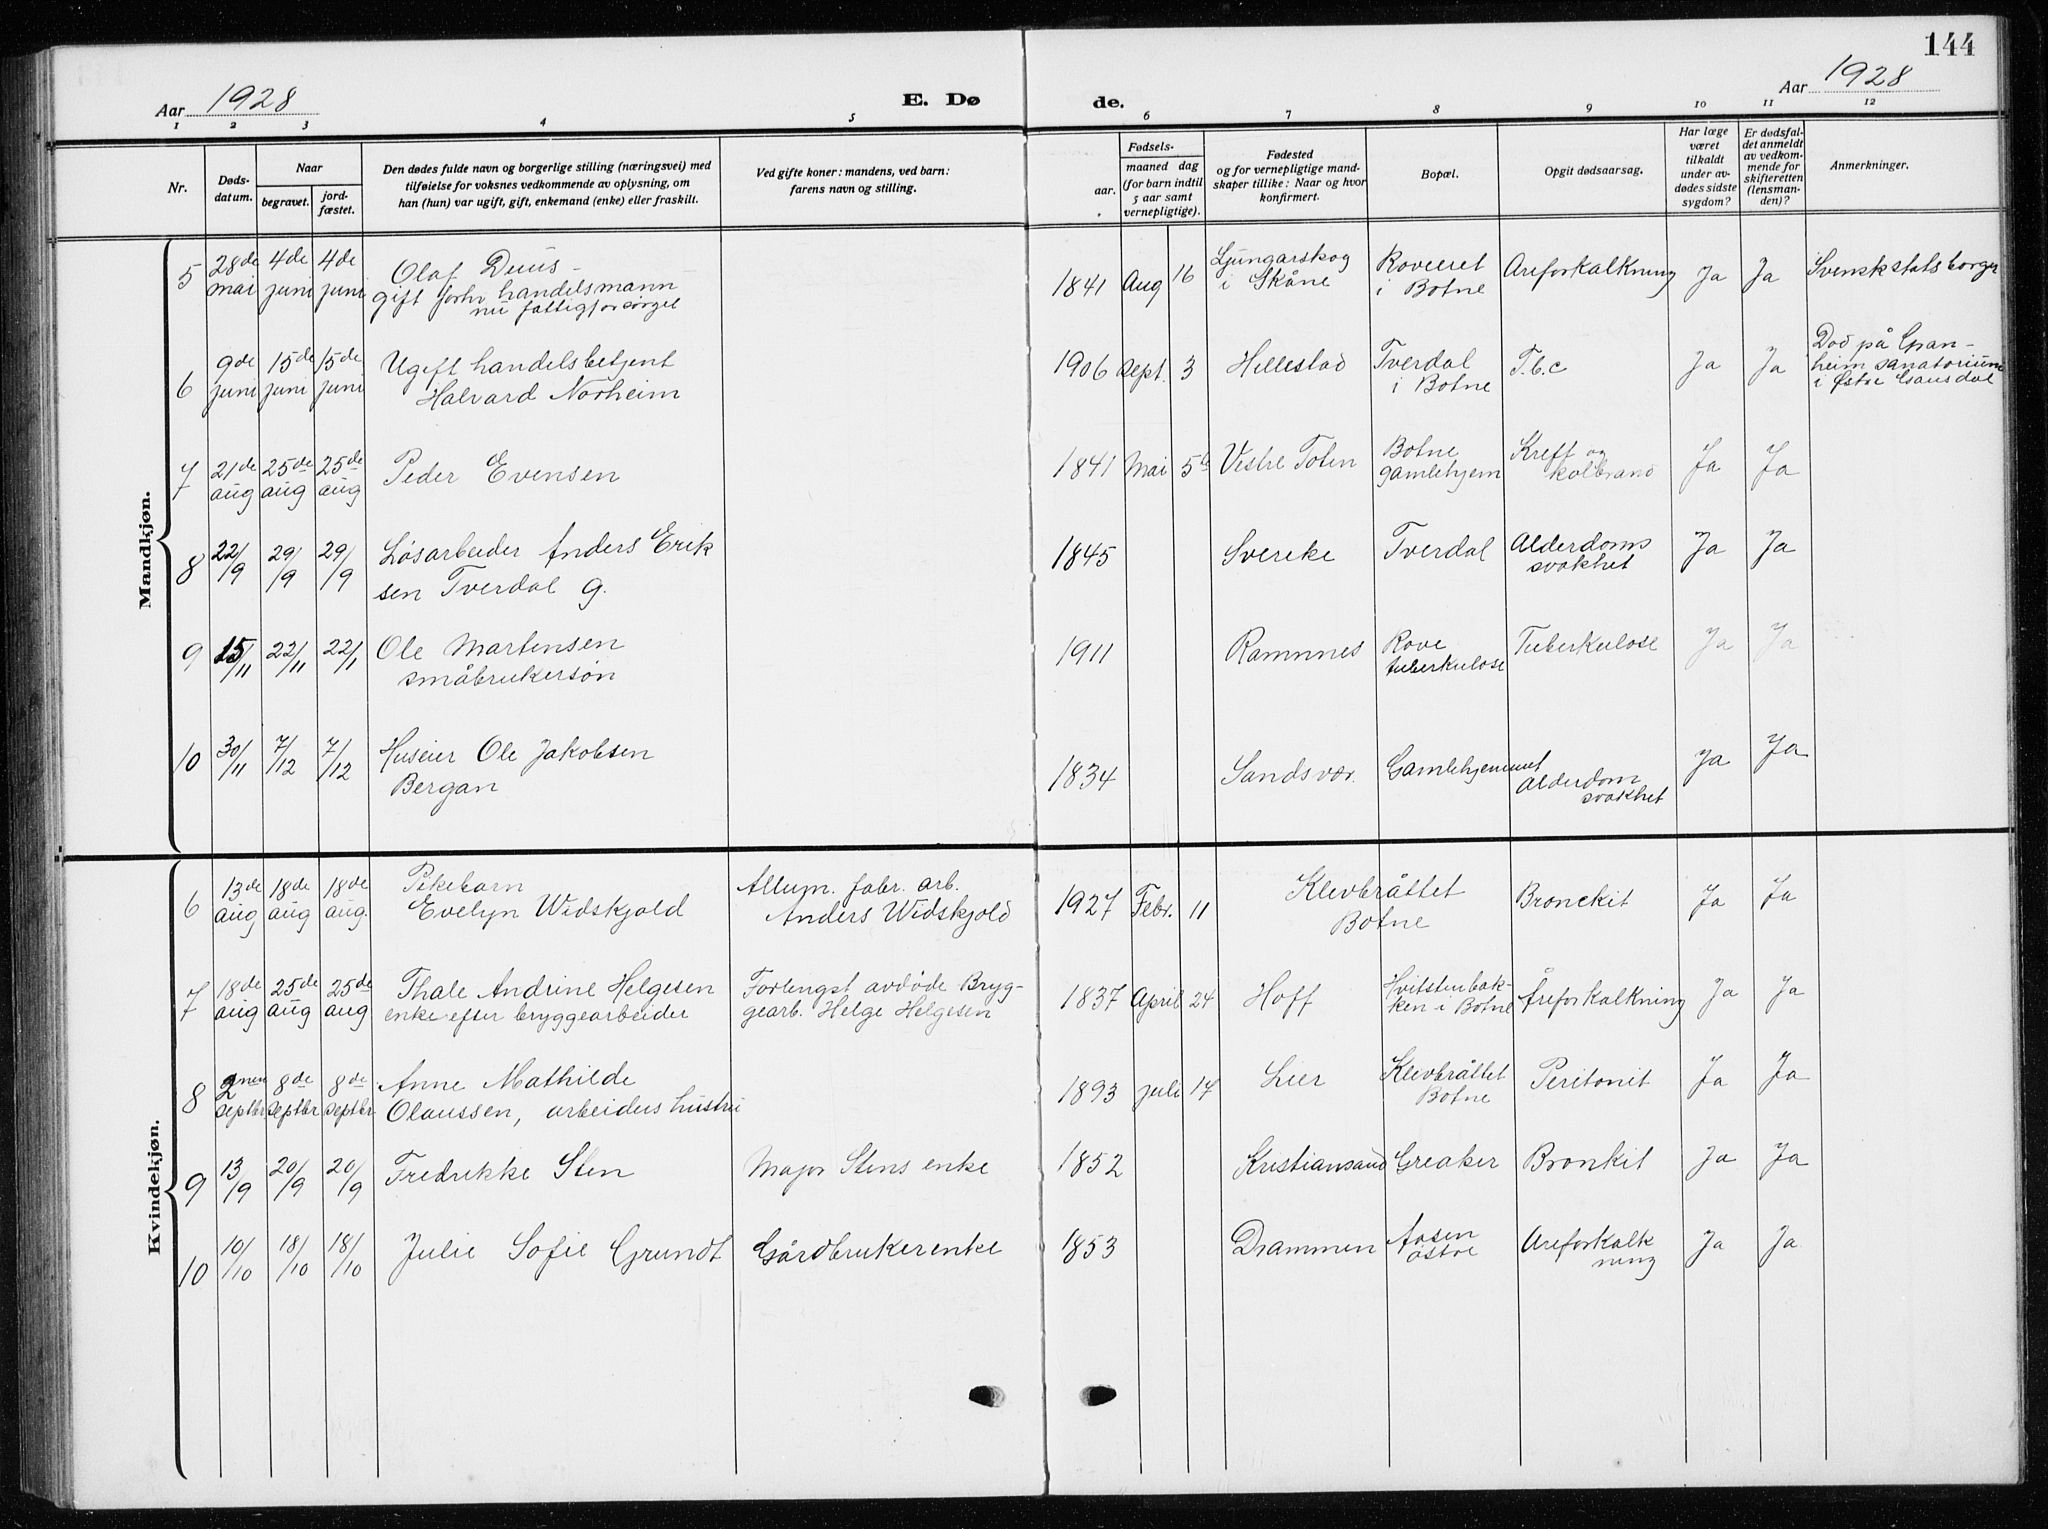 144
Aar 1928
E. Dø
de.
Aar 1928
1 2 3 4 5 6 7 8 9 10 11 12
Nr.
Døds-
datum.
Naar
begravet.
jord-
fæstet.
Den dødes fulde navn og borgerlige stilling (næringsvei) med
tilføielse for voksnes vedkommende av oplysning, om
han (hun) var ugift, gift, enkemand (enke) eller fraskilt.
Ved gifte koner: mandens, ved barn:
farens navn og stilling.
Fødsels-
aar.
maaned dag
(for barn indtil
5 aar samt
vernepligtige).
Fødested
og for vernepligtige mand-
skaper tillike: Naar og hvor
konfirmert.
Bopæl.
Opgit dødsaarsag.
Har læge
været
tilkaldt
under av-
dødes sidste
sygdom?
Er dødsfal-
det anmeldt
av vedkom-
mende for
skifteretten
(lensman-
den)?
Anmerkninger.
Mandkjøn.
5 28de mai 4de juni 4de juni
Olaf Duus -
gift forhv handelsmann
nu fattigforsørget
1841 Aug 16
Ljungarskog
i Skåne
Roveeret
i Botne
Areforkalkning
Ja Ja
Svensk statsborger
6 9de juni 15de juni 15de juni
Ugift handelsbetjent
Halvard Norheim
1906 Sept. 3
Hillestad
Tverdal
i Botne
T.b.c
Ja Ja
Død på Gran-
heim sanatorium
i Østre Gausdal
7 21de aug 25de aug 25de aug
Peder Evensen
1841 Mai 5te
Vestre Toten
Botne
gamlehjem
Kreft og
kolbrand
Ja Ja
8 22/9 29/9 29/9
Løsarbeider Anders Erik
sen Tverdal g.
1845
Svereke
Tverdal
Alderdoms
svakhet
Ja Ja
9 15/11 22/11 22/1
Ole Martensen
småbrukersøn
1911
Ramnnes
Rove
tuberkulose
Tuberkulose
Ja Ja
10 30/11 7/12 7/12
Huseier Ole Jakobsen
Bergan
1834
Sandsvær.
Gamlehjemmet
Alderdom
svakhet
Ja Ja
Kvindekjøn.
6 13de aug 18de aug 18de aug.
Pikebarn
Evelyn Widskjold
Allum. fabr. arb.
Anders Widskjold
1927 Febr. 11
Klevbråttet
Botne
Bronckit
Ja Ja
7 18de aug 25de aug 25de aug
Thale Andrine Helgesen
enke efter bryggearbeider
Forlengst avdøde Bryg-
gearb. Helge Helgesen
1837 April 24
Hoff
Hvitstenbak-
ken i Botne
Åreforkalkning
Ja Ja
8 2nen septbr 8de septbr 8de septbr
Anne Mathilde
Olaussen, arbeiders hustru
1893 juli 14
Lier
Klevbråttet
Botne
Peritonit
Ja Ja
9 13/9 20/9 20/9
Fredrikke Sten
Major Stens enke
1852
Kristiansand
Greaker
Bronkit
Ja Ja
10 10/10 18/10 18/10
Julie Sofie Grundt
Gårdbrukerenke
1853
Drammen
Aasen
østre
Areforkalk
ning
Ja Ja